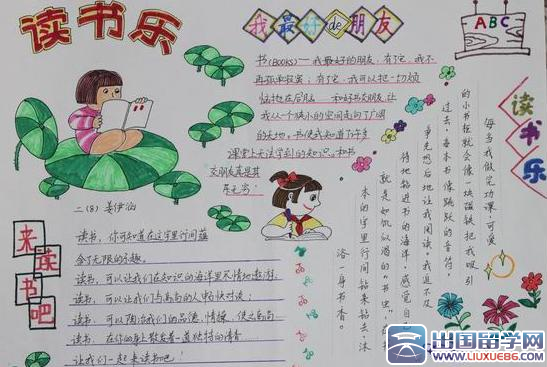 读书乐
我最好de朋友
ABC
书(BOOKS)——我最好的朋友，有了它，我不
再孤单寂寞；有了它，我可以把一切烦
恼抛在后脑
和好书交朋友，让
我从一个狭小的空间走向了广阔
的天地，书使我知道了许多
课堂上无法学到的知识。和书
交朋友真是其
乐无穷！
读书乐
每当我做完功课，可爱
的小书柜就会像一块磁铁把我吸引
过去，每本书像跳跃的音符，
争先恐后地让我阅读。我迫不及
待地钻进书的海洋，感觉自
就是如饥似渴的“书虫”，
本的字里行间钻来钻去，沐
浴一身书香。
二(8) 姜伊涵
来读书吧
读书，你可知道在这字里行间蕴
含了无限的乐趣。
读书，可以让我们在知识的海洋里尽情地遨游；
读书，可以让我们与高尚的人愉快对话；
读书，可以陶冶我们的品德、情操，使之高尚
读书，在你的身上散发着一道独特的清香
让我们一起来读书吧！
出国留学网
www.liuxue86.com